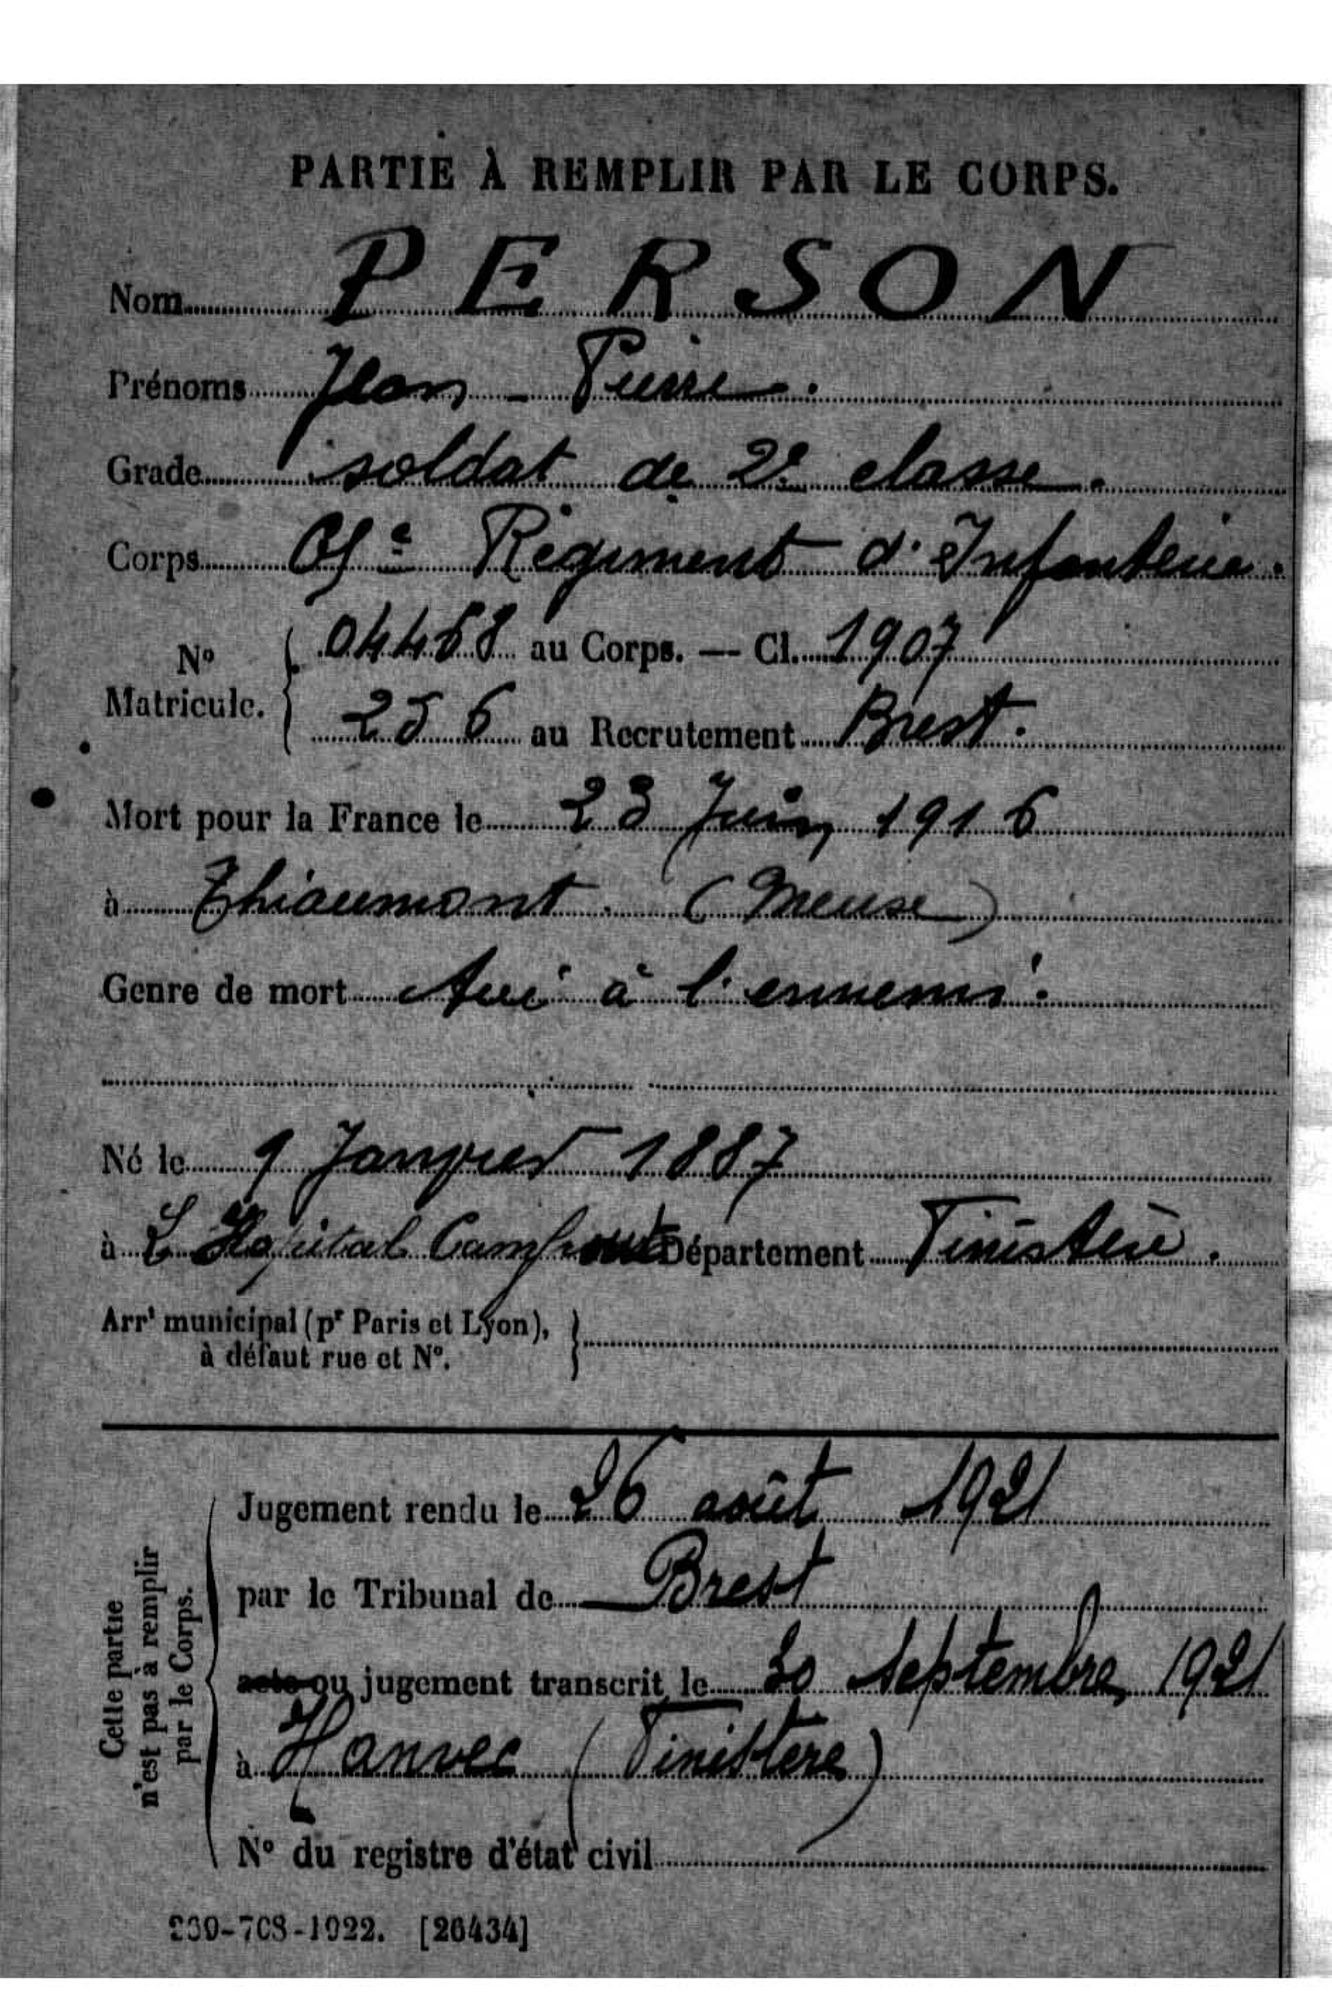 PARTIE À REMPLIR PAR LE CORPS.
Nom PERSON
Prénoms Jean - Pierre.
Grade soldat de 2e classe.
Corps Régiment d'Infanterie.
N° Matricule. 04468 au Corps. — Cl. 1907
256 au Recrutement Brest.
Mort pour la France le 23 Juin 1916
à Thiaumont (Meuse)
Genre de mort tué à l'ennemi.
Né le 9 Janvier 1887
à L'Hopital Camfrout Département Finistère.
Arrt municipal (pr Paris et Lyon),
à défaut rue et N°.
Cette partie
n'est pas à remplir
par le Corps.
Jugement rendu le 26 août 1921
par le Tribunal de Brest
acte ou jugement transcrit le 30 Septembre 1921
à Hanvec (Finistère)
N° du registre d'état civil
239-708-1922. [26434]